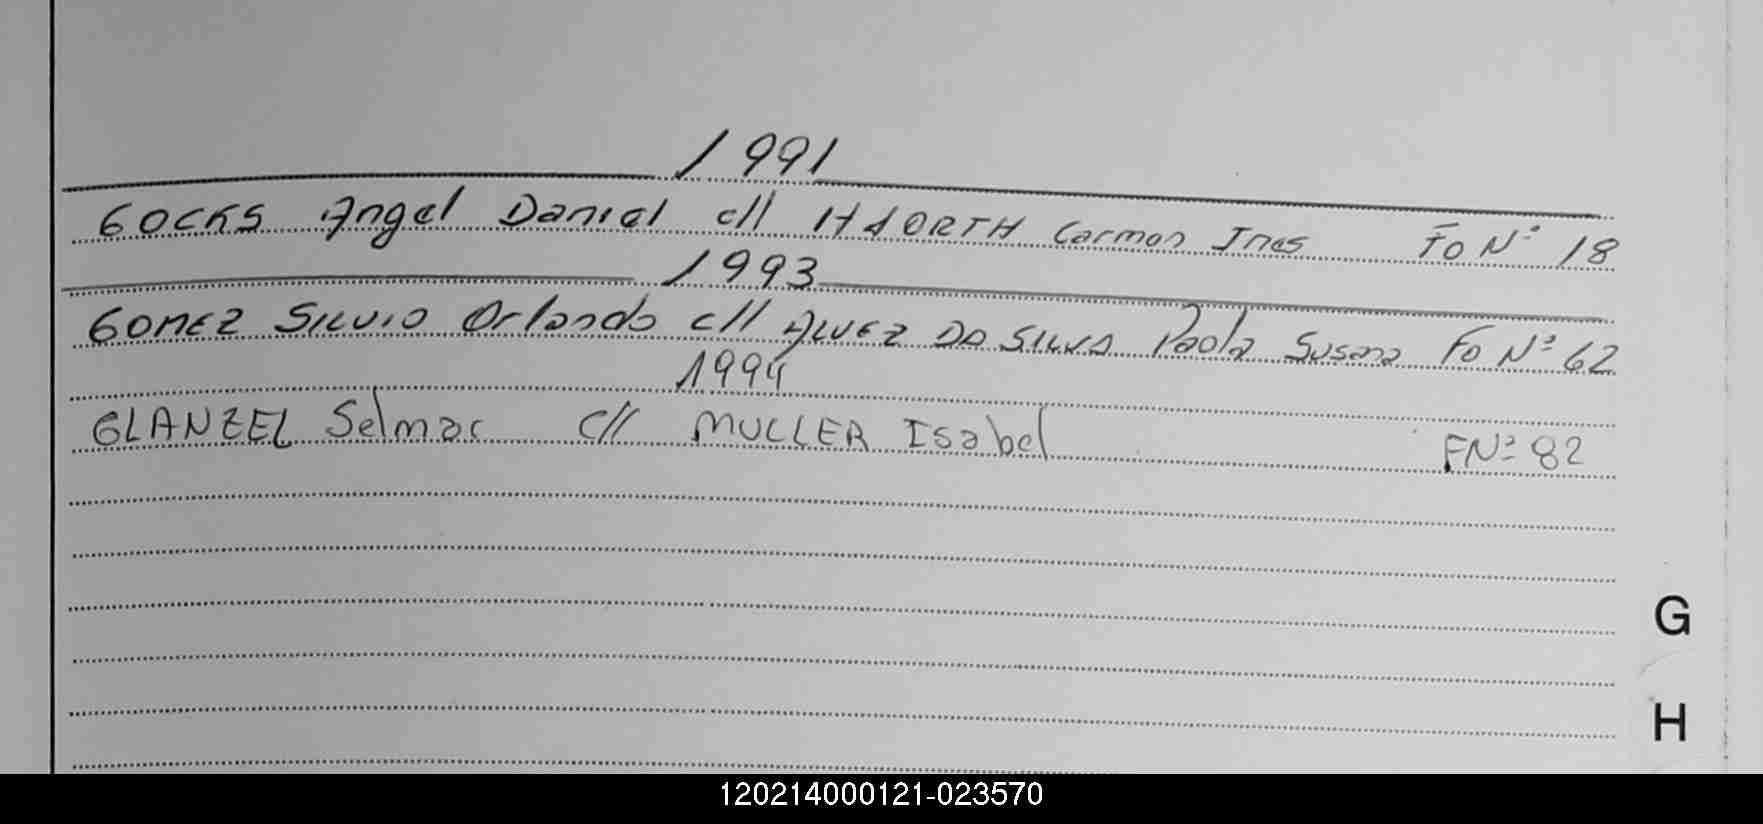 1991
GOCKS Angel Daniel c// HJORTH Carmen Ines Fo Nº 18
1993
GOMEZ SILVIO Orlando c// ALVEZ DA SILVA Paola Susana Fo Nº 62
1994
GLANZEL Selmar c// MULLER Isabel FNº 82
G
H
120214000121-023570